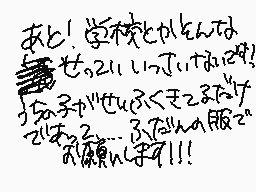 あと!学校とかそんな
せってい いっさいないです!
うちの子がせいふくきてるだけ
であって…ふだんの服で
お願いします!!!